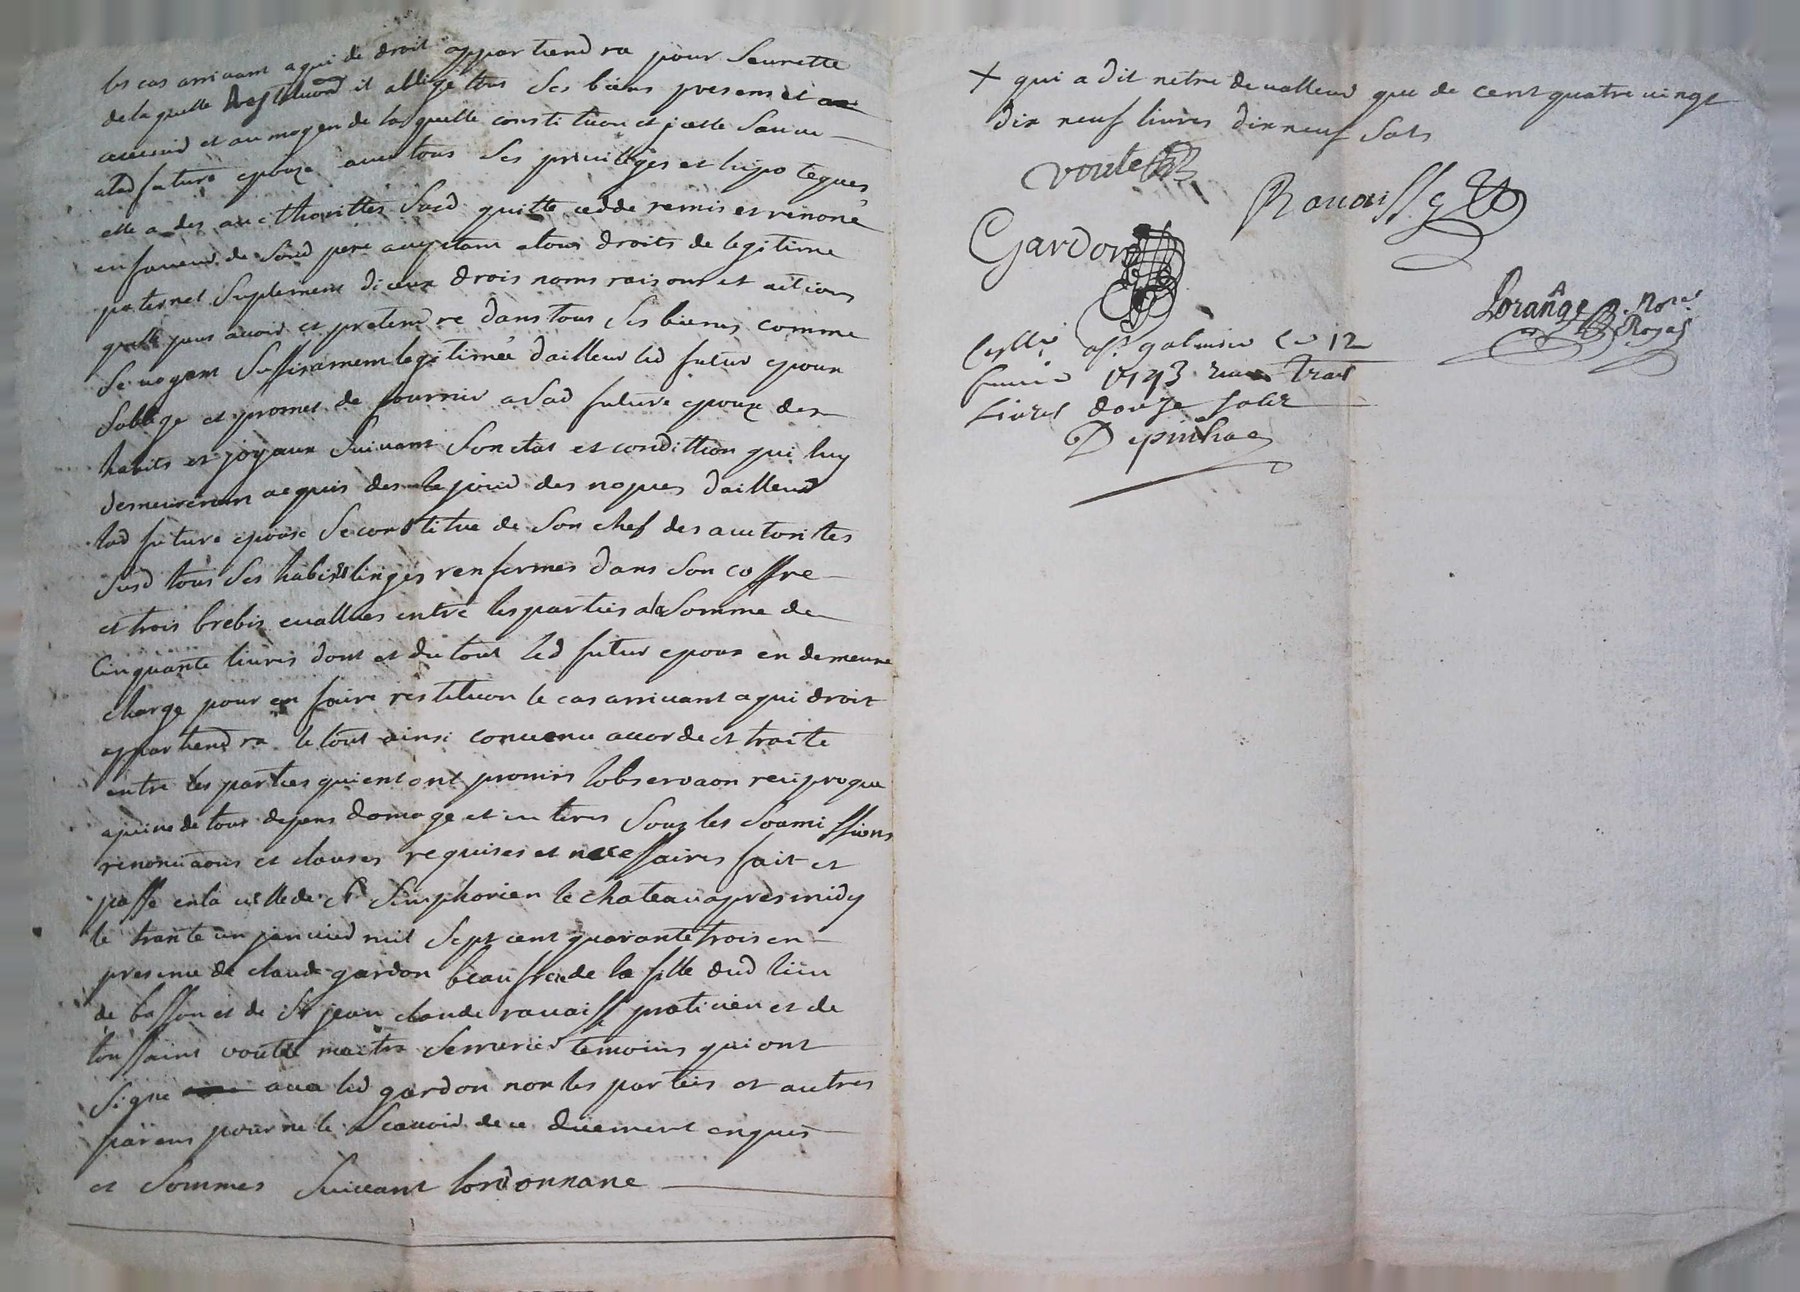 les cas arrivant a qui de droit appartiendra pour seurette
de la quelle restituon il oblige tous ses biens presens et
avenid et au moyen de laquelle constitution et icelle sauve
alad future epouze avec tous ses privileges et hipoteques
elle a des aucthorittes susd quitte cedde remis et renoné
en faveur de sond pere acceptant atous droits de legitime
paternel suplement diceux drois noms raisons et actions
quelle peus avoir et pretendre dans tous ses biens comme
se voyant suffisament legitimée dailleur led futur epoux
soblige et promet de fournir a sad future epouze des
habits et joyaux suivant son etat et condittion qui luy
demeureront acquis des le jour des nopces dailleur
lad future epouse se constitue de son chef des autorites
susd tous ses habits linges renfermes dans son coffre
et trois brebis evallues entre les parties ala somme de
cinquante livres dont et du tout led futur epoux en demeure
charge pour en faire restitucon le cas arrivant a qui droit
appartiendra le tout ainsi convenu accorde et traite
entre les parties qui ent ont promis lobservaon reciproque
a peine de tous depens domage et interes sous les soumissions
renonciaons et clauses requises et necessaires fait et
passe en la ville de St Simphorien le chateau apres midy
le trante un janvied mil sept cent quarante trois en
presence de claude gardon beaufrere de la fille dud lieu
de basson et de Sr jean claude ravaisse praticien et de
toussaint voute maitre serrurier temoins qui ont
signe avec led gardon non les parties et autres
parens pour ne le scavoir de ce duement enquis
et sommes suivant lordonnance
+ qui a dit netre de valleur que de cent quatre vingt
dix neuf livres dixneuf sols
voute
Ravaisse
Gardon
Lorange Nore
Royal
a St galmier le 12
1743
Livres douze solz
Depinhac